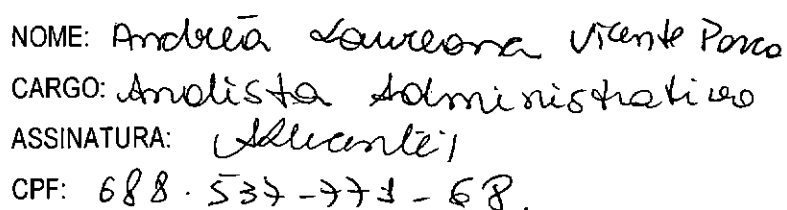 NOME: Andreia Laureana Vicente Porco
CARGO: Analista Administrativo
ASSINATURA:
CPF: 688.537-771-68.